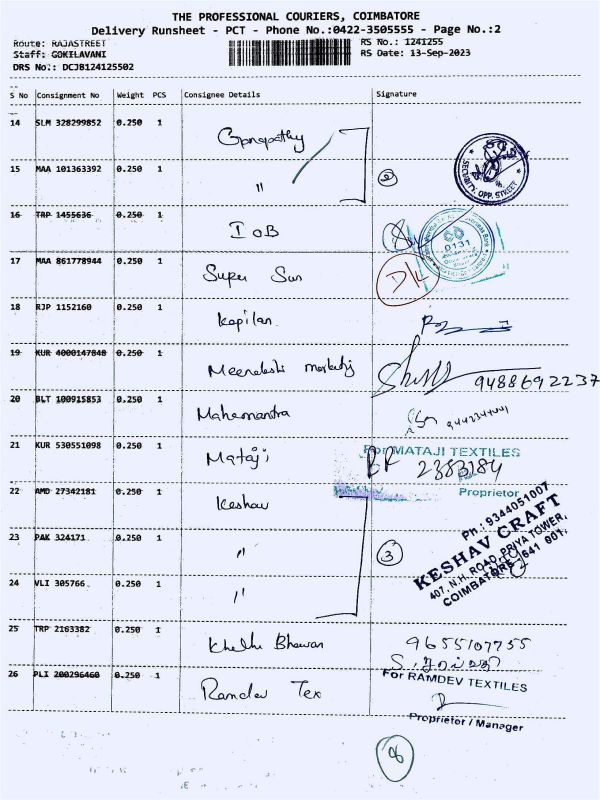 THE PROFESSIONAL COURIERS, COIMBATORE
Delivery Runsheet - PCT - Phone No.:0422-3505555 - Page No.:2
Route: RAJASTREET RS No.: 1241255
Staff: GOKILAVANI RS Date: 13-Sep-2023
DRS No.: DCJB124125502
S No Consignment No Weight PCS Consignee Details Signature
14 SLM 328299852 0.250 1 Ganapathy
15 MAA 101363392 0.250 1 " 2
SECURITY, OPP. STREET
16 TRP 1455636 0.250 1 IOB
0131
17 MAA 861778944 0.250 1 Super Sun D/L
18 RJP 1152160 0.250 1 Kapilan
19 KUR 4000147848 0.250 1 Meenakshi 9488692237
20 BLT 100915853 0.250 1
21 KUR 530551098 0.250 1 Mataji For MATAJI TEXTILES
2383184
Proprietor
22 AMD 27342181 0.250 1 Keshav
23 PAK 324171 0.250 1 " 3
24 VLI 305766 0.250 1 "
Ph.: 9344051007
KESHAV CRAFT
407, N.H. ROAD, PRIYA TOWER,
COIMBATORE - 641 001.
25 TRP 2163382 0.250 1 Bhawan 9655107755
26 PLI 200296460 0.250 1 Ramdev Tex For RAMDEV TEXTILES
Proprietor / Manager